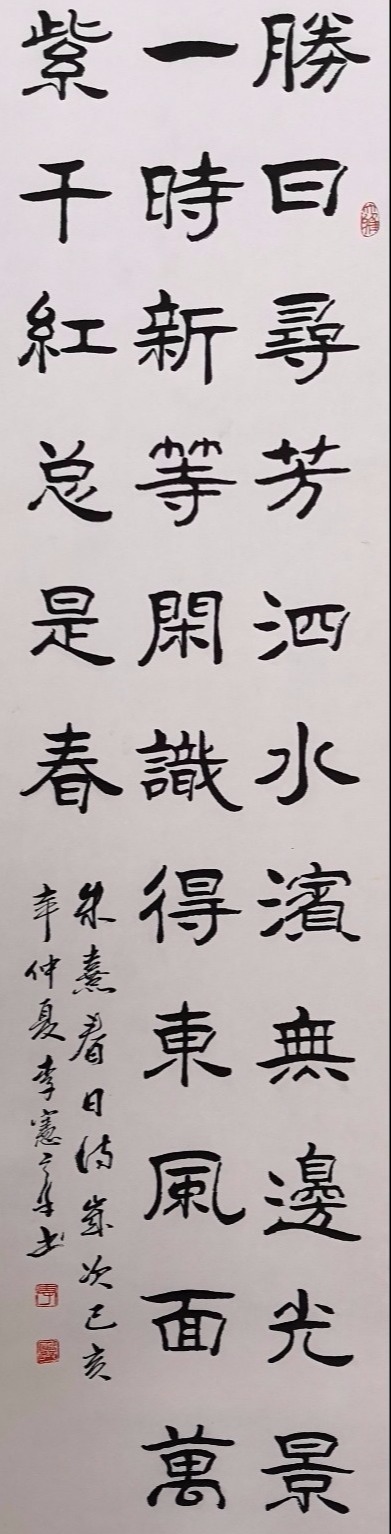 勝日尋芳泗水濱無邊光景
一時新等閑識得東風面萬
紫千紅总是春
朱熹春日詩歲次己亥
年仲夏李憲亭書